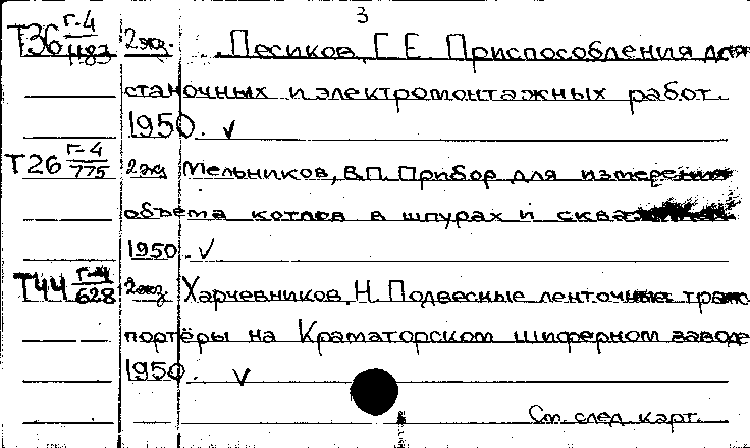 3
Т36 Г-4/1183 2 экз. Песиков, Г.Е. Приспособления для
станочных и электромонтажных работ.
1950. v
Т26 Г-4/775 2 экз Мельников, В.П. Прибор для измерения
объёма котлов в шпурах и
1950. v
Т44 Г-4/628 2 экз Харчевников, Н. Подвесные ленточные транс
портёры на Краматорском шиферном заводе
1950. v
См. след. карт.